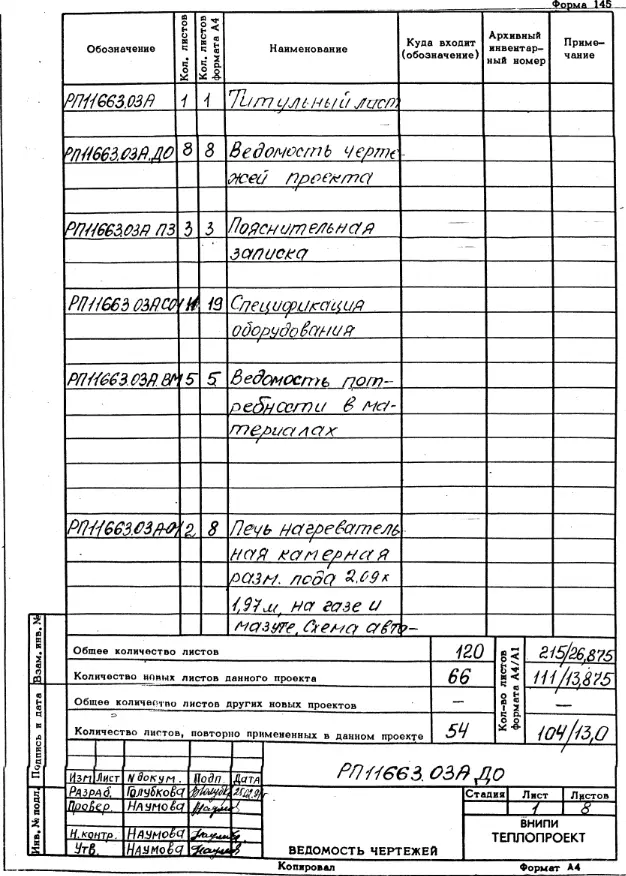 Форма 145
Обозначение Кол. листов Кол. листов формата А4 Наименование Куда входит (обозначение) Архивный инвентарный номер Примечание
РП11663.03А 1 1 Титульный лист
РП11663.03А.ДО 8 8 Ведомость черте-
жей проекта
РП11663.03А ПЗ 3 3 Пояснительная
записка
РП11663.03АСО 11 19 Спецификация
оборудования
РП11663.03А.ВМ 5 5 Ведомость пот-
ребности в ма-
териалах
РП11663.03А-01 2 8 Печь нагреватель
ная камерная
разм. пода 2.09х
1,97м, на газе и
мазуте. Схема авто-
Общее количество листов 120 215/26,875
Количество новых листов данного проекта 66 111/13,875
Общее количество листов других новых проектов — —
Количество листов, повторно примененных в данном проекте 54 104/13,0
Кол-во листов формата А4/А1
Взам. инв. №
Подпись и дата
Инв. № подл.
РП11663.03А ДО
Изм Лист N докум. Подп Дата
Разраб. Голубкова
Провер. Наумова
Н.контр. Наумова
Утв. Наумова
Стадия Лист Листов
1 8
ВЕДОМОСТЬ ЧЕРТЕЖЕЙ
ВНИПИ
ТЕПЛОПРОЕКТ
Копировал Формат А4